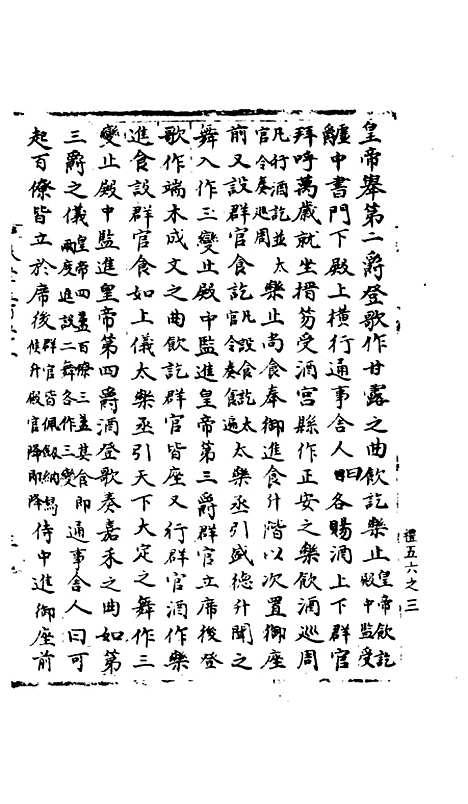 皇帝舉第二爵登歌作甘露之曲飲訖樂止皇帝飲訖殿中監受
觶中書門下殿上橫行通事舍人曰各賜酒上下群官
拜呼萬歲就坐搢笏受酒宮縣作正安之樂飲酒巡周
凡行酒訖並太官令奏巡周樂止尚食奉御進食升階以次置御座
前又設群官食訖凡設食訖太官令奏食遍太樂丞引盛德升聞之
舞入作三變止殿中監進皇帝第三爵群官立席後登
歌作端木成文之曲飲訖群官皆座又行群官酒作樂
進食設群官食如上儀太樂丞引天下大定之舞作三
變止殿中監進皇帝第四爵酒登歌奏嘉禾之曲如第
三爵之儀皇帝四盞百僚三盞其食即兩度進設二舞各作三變通事舍人曰可
起百僚皆立於席後群官皆佩劍納舄候升殿官降即降侍中進御座前
禮五六之三